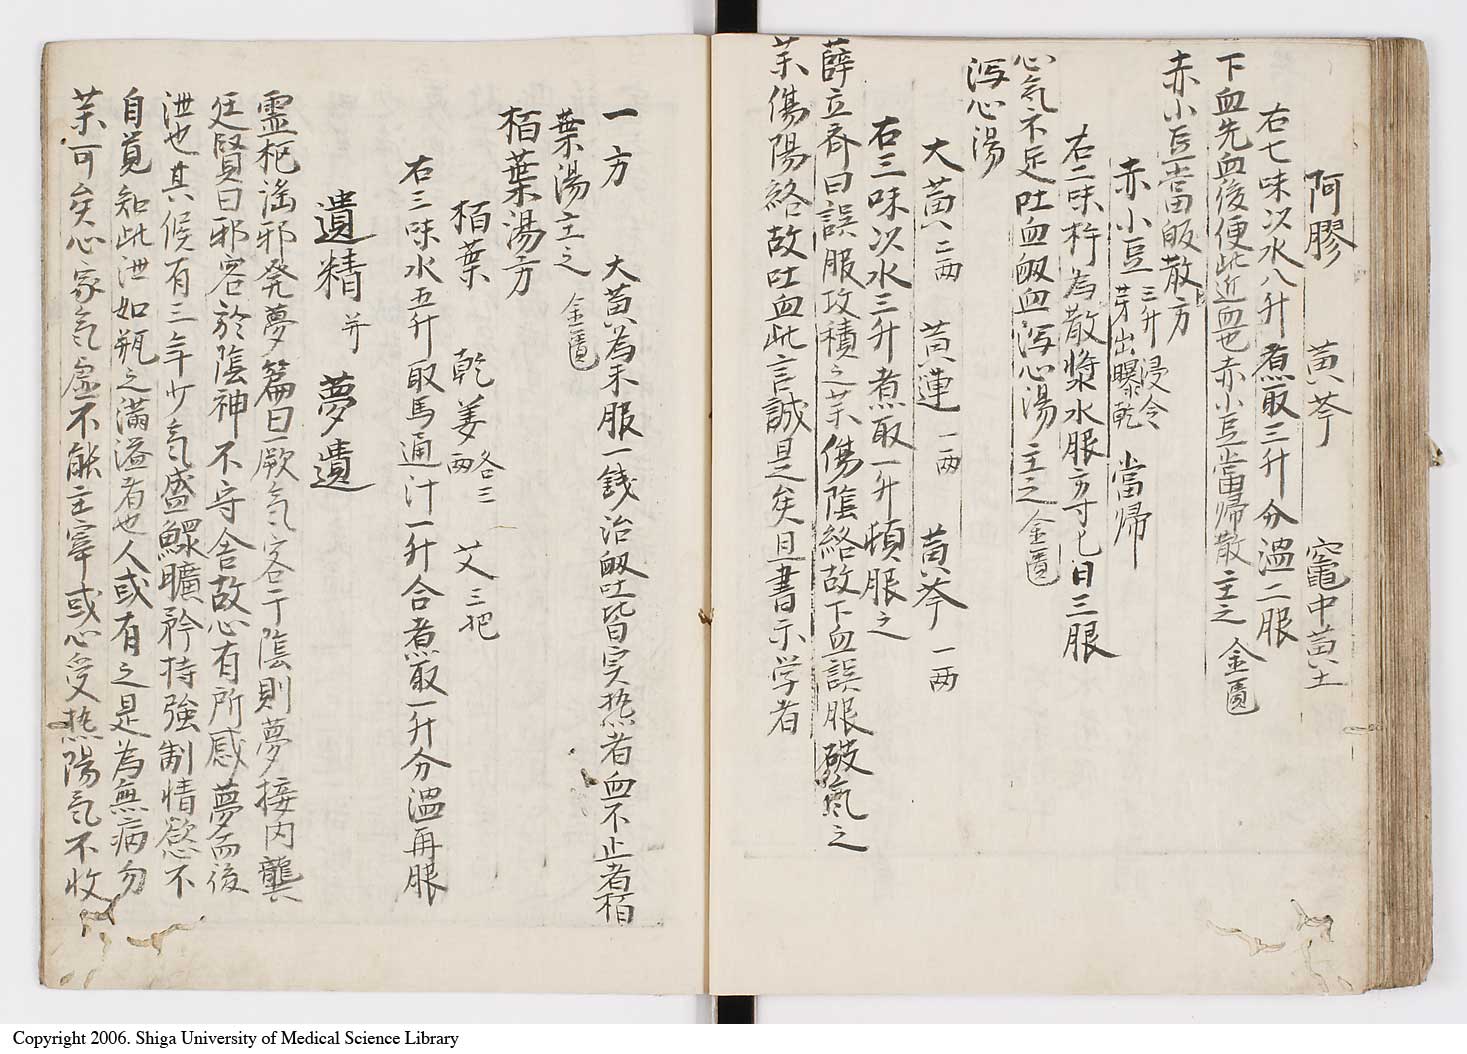 阿膠　黄芩　竈中黄土
右七味以水八升煮取三升分温二服
下血先血後便此近血也赤小豆當歸散主之 金匱
赤小豆當皈散方
赤小豆 三升浸令芽出曝乾　當歸
右二味杵為散漿水服方寸匕日三服
心氣不足吐血衂血瀉心湯主之 金匱
瀉心湯
大黄 二两　黄連 一两　黄芩 一两
右三味以水三升煮取一升頓服之
薛立斉曰誤服攻積之薬傷陰絡故下血誤服破氣之
薬傷陽絡故吐血此言誠是矣且書示学者
一方　大黄為末服一銭治衂吐皆実热者血不止者栢
葉湯主之 金匱
栢葉湯方
栢葉　乾姜 各三两　艾 三把
右三味水五升取馬通汁一升合煮取一升分温再服
遺精 并 夢遺
霊枢淫邪発夢篇曰厥气客于陰則夢接内龔
廷賢曰邪客於陰神不守舎故心有所感夢而後
泄也其候有三年少气盛鰥曠矜持強制情慾不
自覚知此泄如瓶之滿溢者也人或有之是為無病勿
薬可矣心家气虚不能主宰或心受热陽気不收
Copyright 2006. Shiga University of Medical Science Library